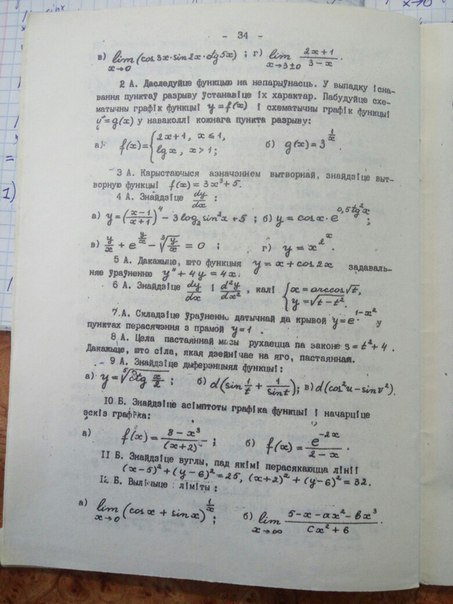 - 34 -
в) lim x→0 (cos 3x · sin 2x · ctg 5x) ; г) lim x→3±0 (2x+1)/(3-x) .
2 А. Даследуйце функцыю на непарыўнасць. У выпадку існа-
вання пунктаў разрыву ўстанавіце іх характар. Пабудуйце схе-
матычны графік функцыі y=f(x) і схематычны графік функцыі
y=g(x) у наваколлі кожнага пункта разрыву:
а) f(x)={2x+1, x≤1, lg x, x>1; б) g(x)=3^(1/x)
3 А. Карыстаючыся азначэннем вытворнай, знайдзіце выт-
ворную функцыі f(x)=3x³+5.
4 А. Знайдзіце dy/dx :
а) y=((x-1)/(x+1))⁴-3log₂sin²x+5 ; б) y=cosx·e^(0,5tg²x) ;
в) y/x + e^(y/x) - ∛(y/x) = 0 ; г) y=x^(2^x) .
5 А. Дакажыце, што функцыя y=x+cos2x задаваль-
няе ўраўненню y″+4y=4x.
6 А. Знайдзіце dy/dx і d²y/dx², калі {x=arccos√t, y=√(t-t²).
7 А. Складзіце ўраўненне датычнай да крывой y=e^(1-x²) у
пунктах перасячэння з прамой y=1 .
8 А. Цела пастаяннай масы рухаецца па законе s=t²+4 .
Дакажыце, што сіла, якая дзейнічае на яго, пастаянная.
9 А. Знайдзіце дыферэнцыял функцыі:
б) d(sin 1/t + 1/sin t); в) d(cos²u-sinv²).
10 Б. Знайдзіце асімптоты графіка функцыі і начарціце
эскіз графіка:
а) f(x)=(8-x³)/(x+2)² ; б) f(x)=e^(-2x)/(2-x) .
11 Б. Знайдзіце вуглы, пад якімі перасякаюцца лініі
(x-5)²+(y-6)²=25, (x+2)²+(y-6)²=32.
12 Б. Вылічыце ліміты:
а) lim x→0 (cosx+sinx)^(1/x) ; б) lim x→∞ (5-x-ax²-bx³)/(cx²+6)